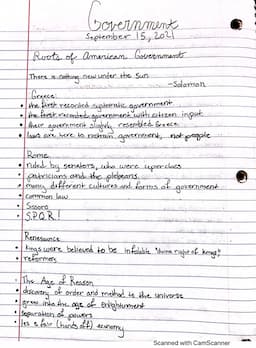 Government
September 15, 2021
Roots of American Government
There is nothing new under the sun
-Solomon
Greece:
• the first recorded systematic government
• the first recorded government with citizen input
• their government slightly resembled Greece
• laws are here to restrain government, not people
Rome
• ruled by senators, who were upperclass
• patricians and the plebeans
• many different cultures and forms of government
• common law
• S.P.Q.R!
Renesaunce
• Kings were believed to be infalable "divine right of kings"
• reformers
The Age of Reason
• discovery of order and method to the universe
• grew into the age of Enlightenment
• separation of powers
(hands off) economy
Scanned with CamScanner